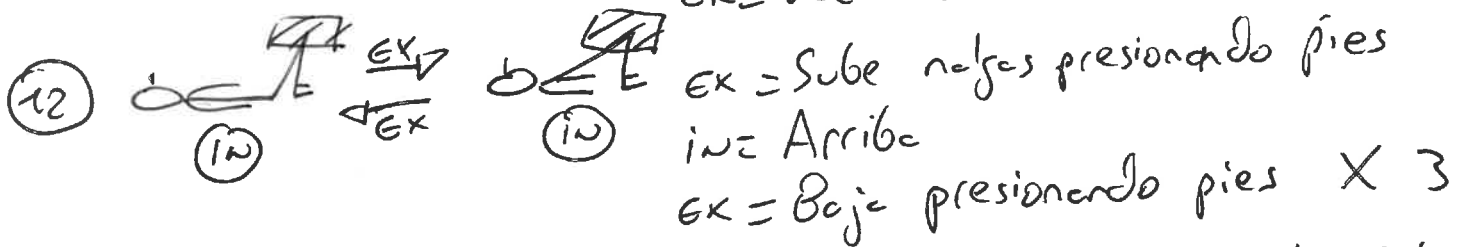 12
EX
EX
IN
IN
EX = Sube nalgas presionando pies
IN = Arriba
EX = Baja presionando pies X 3